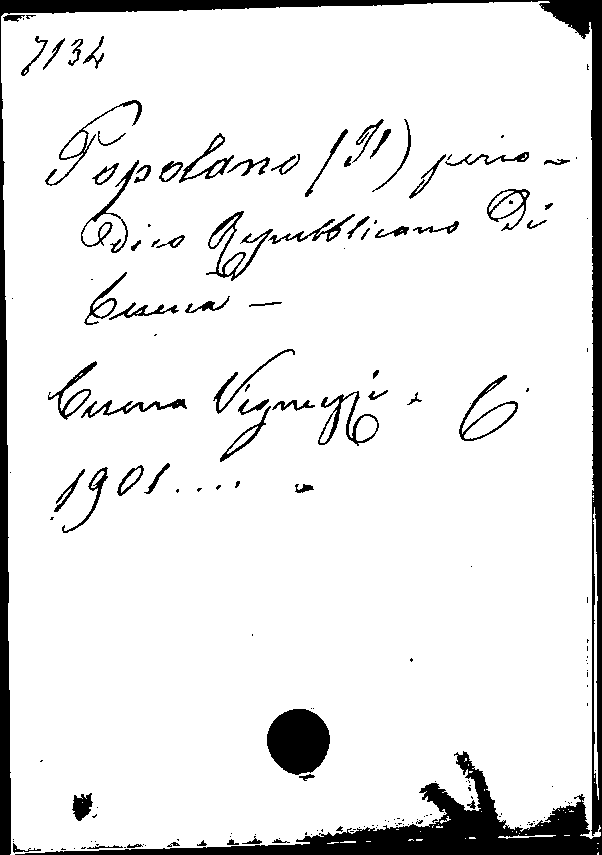 7134
Popolano (Il) perio-
dico Repubblicano Di
Cesena —
Cesena Vignuzzi. C.
1901....